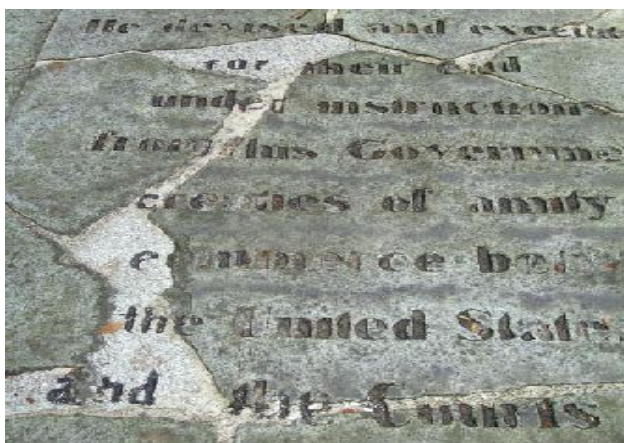 He devised and execute
for their end
under instructions
from his Governme
creaties of amity
commerce betw
the United State
and the Courts